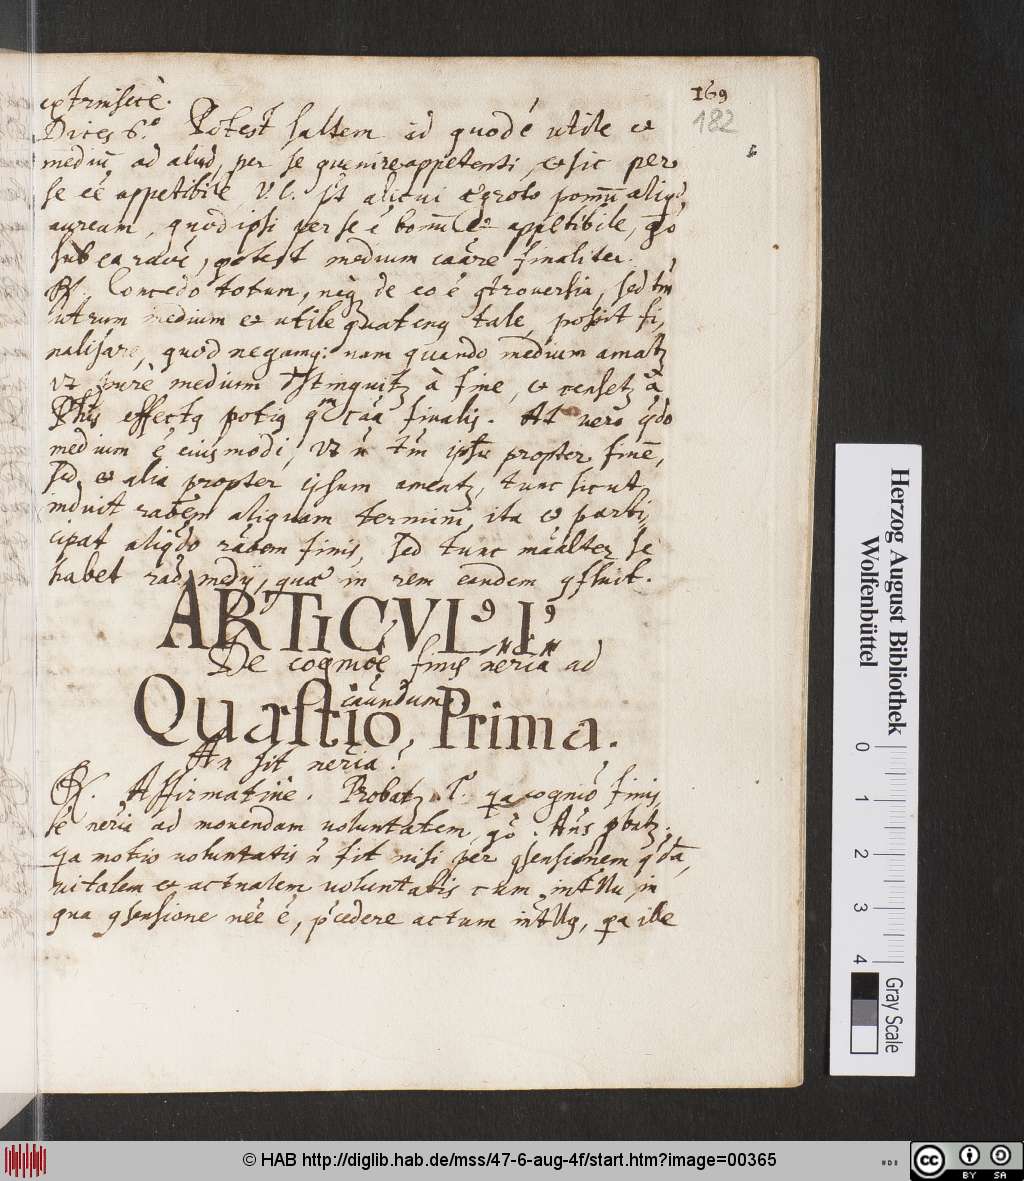 169
182
extrinsecè.
Dices 6.º Potest saltem id quod é utile et
mediũ ad aliud, per se appetenti, et sic per
se eẽ appetibile, V. C. si alicui ægroto pomũ aliqd
aureum, quod ipsi per se é bonũ et appetibile, gõ
sub ea raõe, potest medium caãre finaliter.
R. Concedo totum, neq de eo é gtroversia, sed tm̃
utrum medium et utile quatenq tale, possit fi,
nalisare, quod negamq: nam quando medium amatz
ut purè medium distinguitz à fine, et censetz à
effectq potiq qm caã finalis. At vero qdo
medium é eiusmodi, ut ñ tm̃ ipsũ propter finẽ,
sed et alia propter ipsum amentz, tunc sicut
induit raõem aliquam terminĩ, ita et parti,
cipat aliqdo raõem finis, sed tunc maãlter se
habet raõ medij, quæ in rem eandem gfluit.
ARTICVLꝰ Iꝰ
De cognoẽ finis neria ad
cãundum
Quæstio, Prima.
An sit neria?
R. Affirmatiũe. Probatz 1º qa cognitõ finis
sẽ neria ad mouendam uoluntatem, gõ. Añs pbatz.
qa motio uoluntatis ñ fit nisi per gsensionem qdã,
uitalem et actualem uoluntatis cum intllu, in
qua gsensione neẽ é, pcedere actum intllq, qa ille
Herzog August Bibliothek
Wolfenbüttel
0 1 2 3 4
Gray Scale
© HAB http://diglib.hab.de/mss/47-6-aug-4f/start.htm?image=00365
cc BY SA